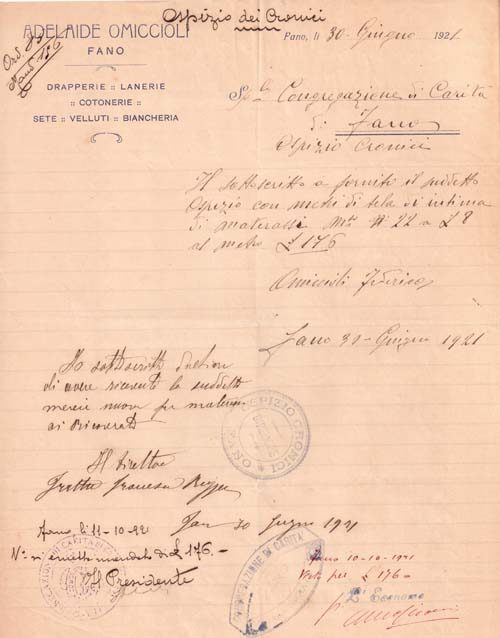 Ospizio dei Cronici
ADELAIDE OMICCIOLI
FANO
Fano, li 30-Giugno 1921
Mand 156
DRAPPERIE :: LANERIE
:: COTONERIE ::
SETE :: VELLUTI :: BIANCHERIA
Sp. Congregazione di Carità
di
Fano
Ospizio Cronici
Il sottoscritto a fornito il suddetto
Ospizio con metri di tela di intima
di materassi Mti N° 22 a £ 8
al metro £ 176
Omiccioli Federico
Fano 30-Giugno 1921
Io sottoscritto
di avere ricevuto la suddetta
merce nuova per
ai ricoverati
Il Direttore
Fano 30 Giugno 1921
OSPIZIO CRONICI
Fano li 11-10-921
N° si emetta mandato di £ 176.-
Il Presidente
CONGREGAZIONE DI CARITA'
Fano 10-10-1921
Visto per £ 176-
L' Economo